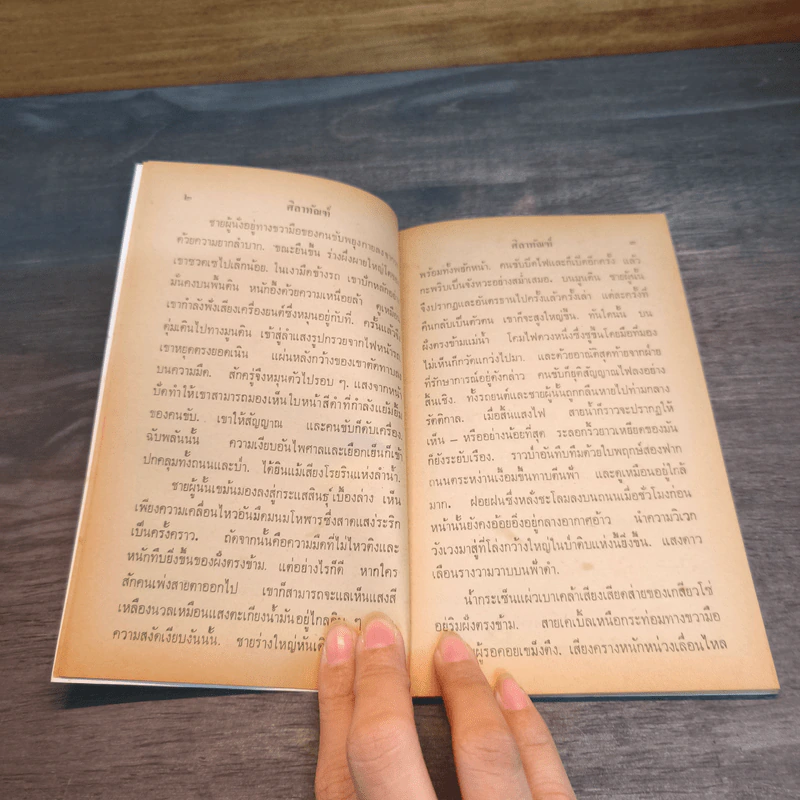 ๒
ศิลาทัณฑ์
ชายผู้นั่งอยู่ทางขวามือของคนขับพยุงกายลงจาก
ด้วยความยากลำบาก. ขณะยืนขึ้น ร่างผึ่งผายใหญ่โตของ
เขาซวดเซไปเล็กน้อย. ในเงามืดข้างรถ เขาปักหลักอย่าง
มั่นคงบนพื้นดิน หนักอึ้งด้วยความเหนื่อยล้า ดูเหมือน
เขากำลังฟังเสียงเครื่องยนต์ซึ่งหมุนอยู่กับที่. ครั้นแล้วจึง
ดุ่มเดินไปทางมูนดิน เข้าสู่ลำแสงรูปกรวยจากไฟหน้ารถ
เขาหยุดตรงยอดเนิน แผ่นหลังกว้างของเขาตัดทาบลง
บนความมืด. สักครู่จึงหมุนตัวไปรอบ ๆ. แสงจากหน้า
ปัดทำให้เขาสามารถมองเห็นใบหน้าสีดำที่กำลังแย้มยิ้ม
ของคนขับ. เขาให้สัญญาณ และคนขับก็ดับเครื่อง.
ฉับพลันนั้น ความเงียบอันไพศาลและเยือกเย็นก็เข้า
ปกคลุมทั้งถนนและป่า. ได้ยินแม้เสียงโรยรินแห่งลำน้ำ.
ชายผู้นั้นเขม้นมองลงสู่กระแสสินธุ์เบื้องล่าง เห็น
เพียงความเคลื่อนไหวอันมืดมนมโหฬารซึ่งสาดแสงระริก
เป็นครั้งคราว. ถัดจากนั้นคือความมืดที่ไม่ไหวติงและ
หนักทึบยิ่งขึ้นของฝั่งตรงข้าม. แต่อย่างไรก็ดี หากใคร
สักคนเพ่งสายตาออกไป เขาก็สามารถจะแลเห็นแสงสี
เหลืองนวลเหมือนแสงตะเกียงน้ำมันอยู่ไกลลิบ ๆ
ความสงัดเงียบงันนั้น. ชายร่างใหญ่หัน
ศิลาทัณฑ์
๓
พร้อมทั้งพยักหน้า. คนขับปิดไฟและก็เปิดอีกครั้ง แล้ว
กะพริบเป็นจังหวะอย่างสม่ำเสมอ. บนมูนดิน ชายผู้นั้น
จึงปรากฏและอันตรธานไปครั้งแล้วครั้งเล่า แต่ละครั้งที่
คืนกลับเป็นตัวตน เขาก็จะสูงใหญ่ขึ้น. ทันใดนั้น บน
ฝั่งตรงข้ามแม่น้ำ โคมไฟดวงหนึ่งซึ่งชูขึ้นโดยมือที่มอง
ไม่เห็นก็กวัดแกว่งไปมา. และด้วยอาณัติสุดท้ายจากฝ่าย
ที่รักษาการณ์อยู่ดังกล่าว คนขับก็ยุตสัญญาณไฟลงอย่าง
สิ้นเชิง. ทั้งรถยนต์และชายผู้นั้นถูกกลืนหายไปท่ามกลาง
รัตติกาล. เมื่อสิ้นแสงไฟ สายน้ำก็ราวจะปรากฏให้
เห็น – หรืออย่างน้อยที่สุด ระลอกริ้วยาวเหยียดของมัน
ก็ยังระยับเรื่อ. ราวป่าอันทึบทึมด้วยใบพฤกษ์สองฟาก
ถนนตระหง่านเงื้อมขึ้นทาบตีนฟ้า และดูเหมือนอยู่ใกล้
มาก. ฝอยฝนซึ่งหลั่งชะโลมลงบนถนนเมื่อชั่วโมงก่อน
หน้านั้นยังคงอ้อยอิ่งอยู่กลางอากาศอ้าว นำความวิเวก
วังเวงมาสู่ที่โล่งกว้างใหญ่ในป่าดิบแห่งนี้ยิ่งขึ้น. แสงดาว
เลือนรางวามวาบบนฟ้าดำ.
น้ำกระเซ็นแผ่วเบาเคล้าเสียงเสียดส่ายของเกลียวโซ่
อยู่ริมฝั่งตรงข้าม. สายเคเบิ้ลเหนือกระท่อมทางขวามือ
ผู้รอคอยเขม็งตึง. เสียงครางหนักหน่วงเลื่อนไหล